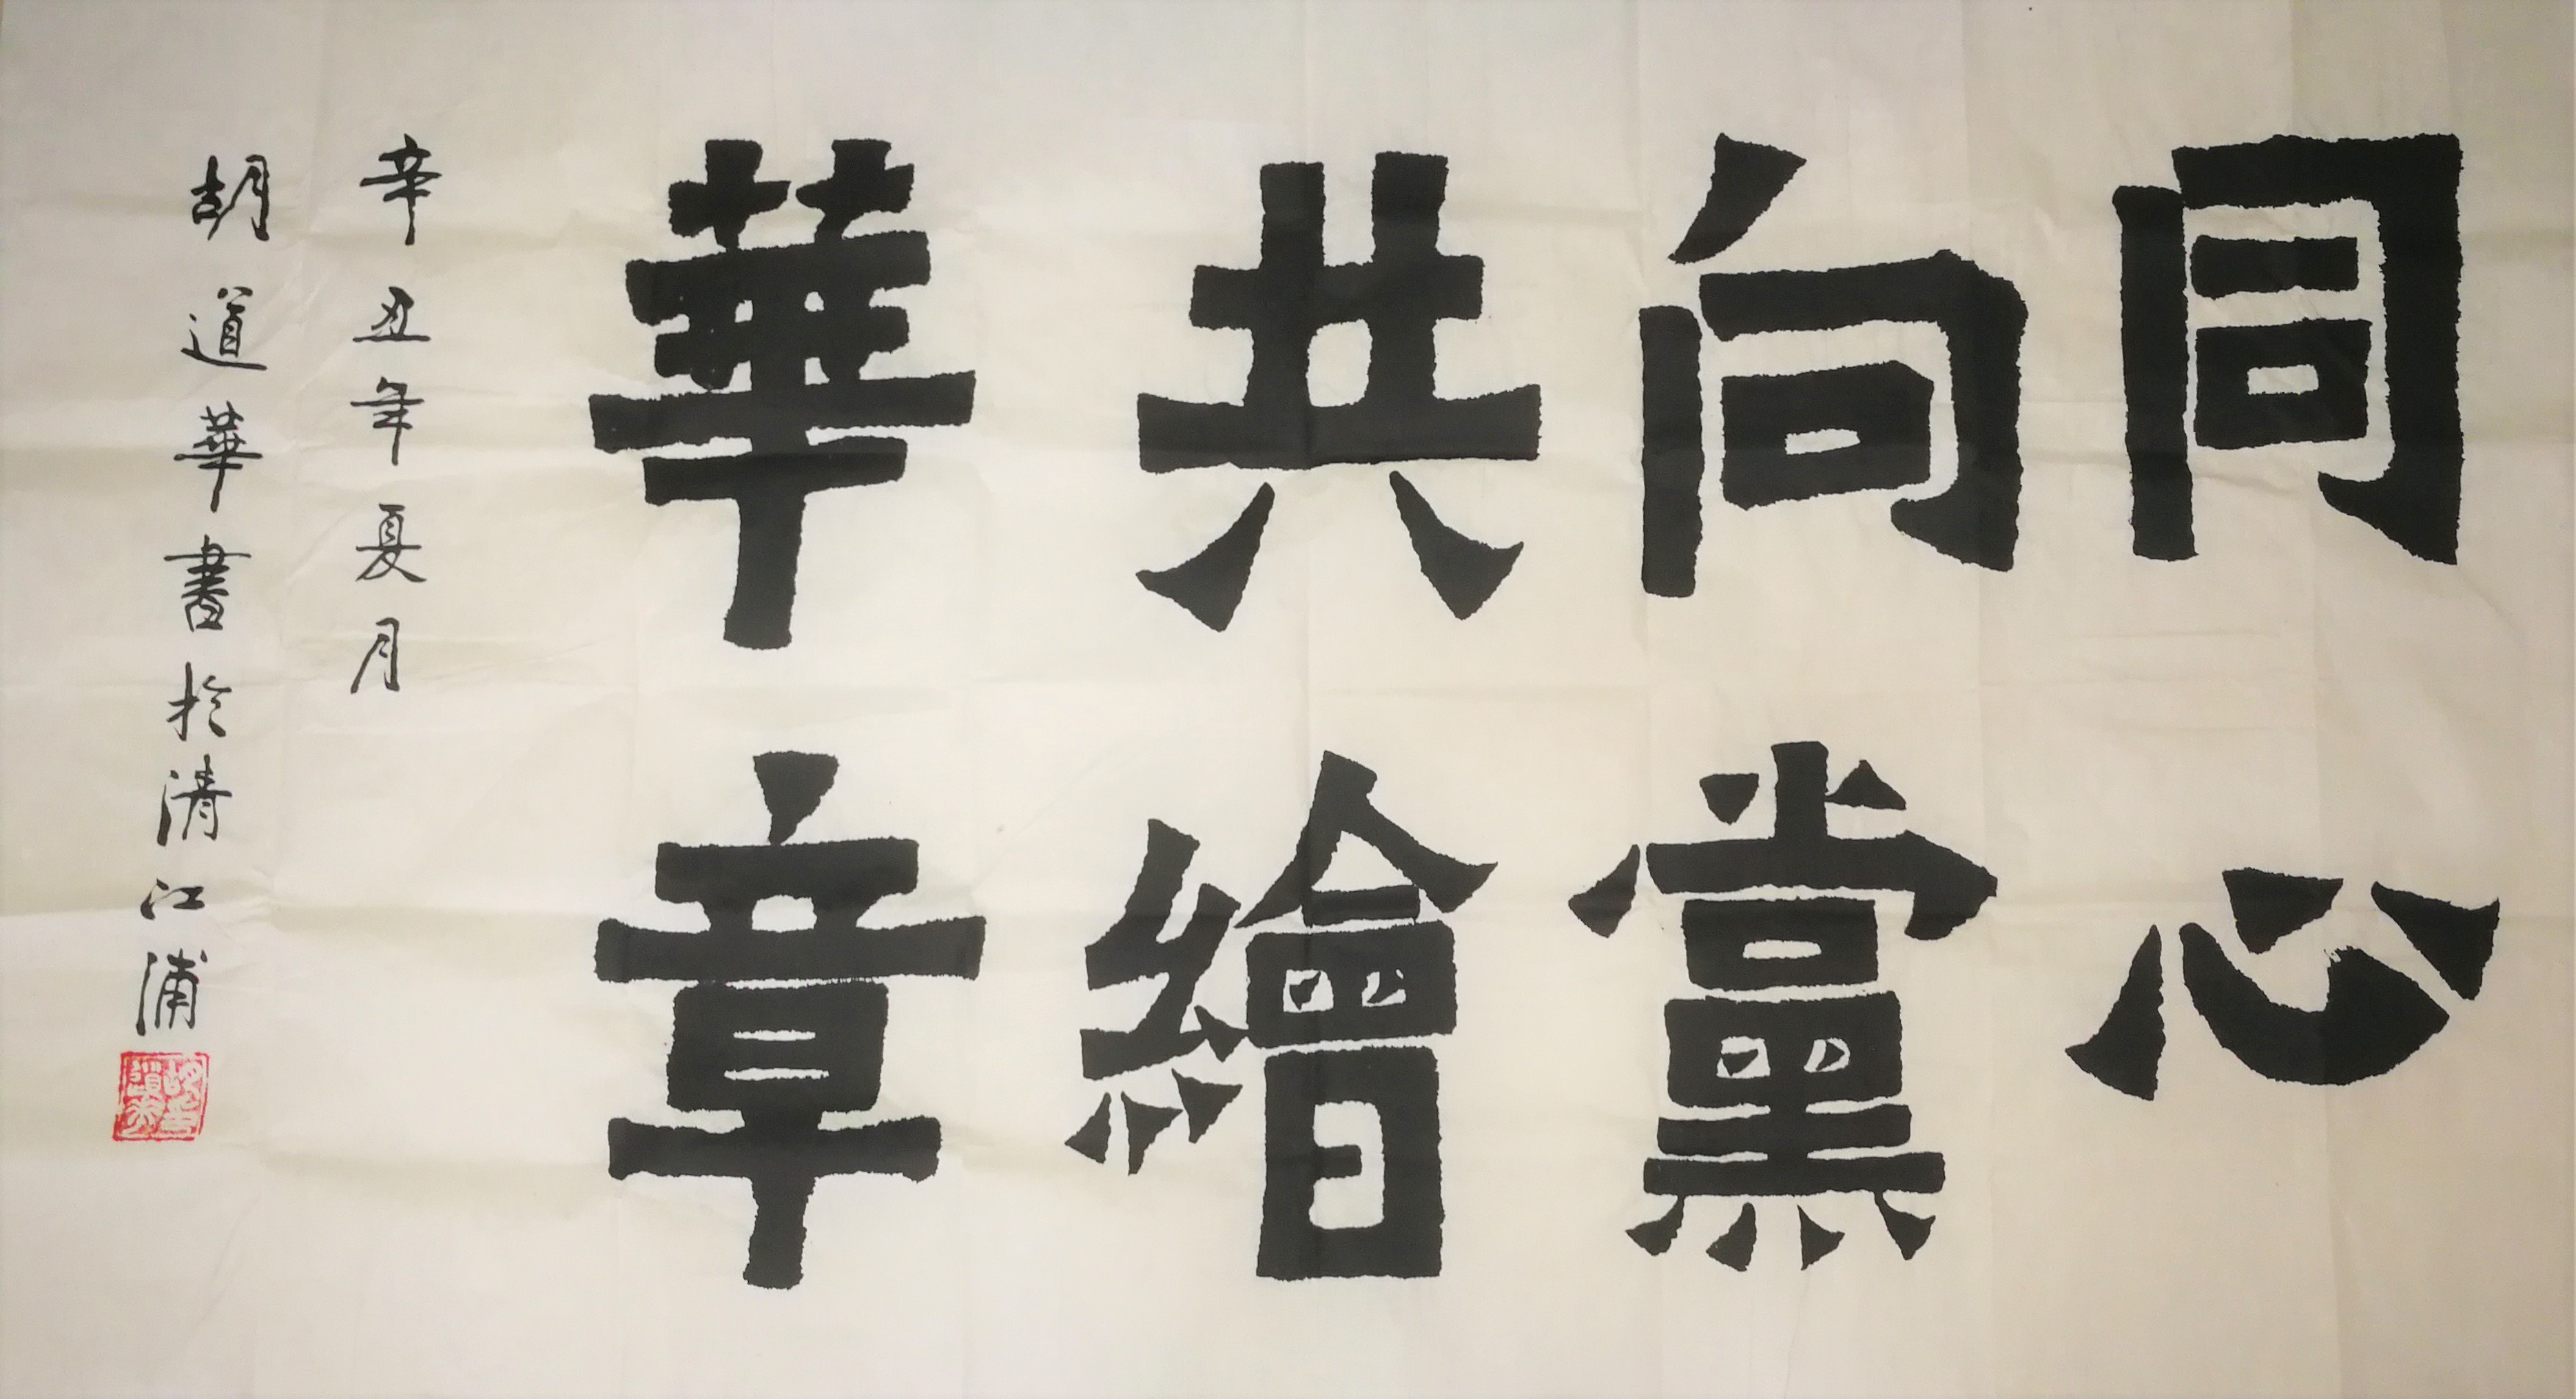 同心
向黨
共繪
華章
辛丑年夏月
胡道華書於清江浦